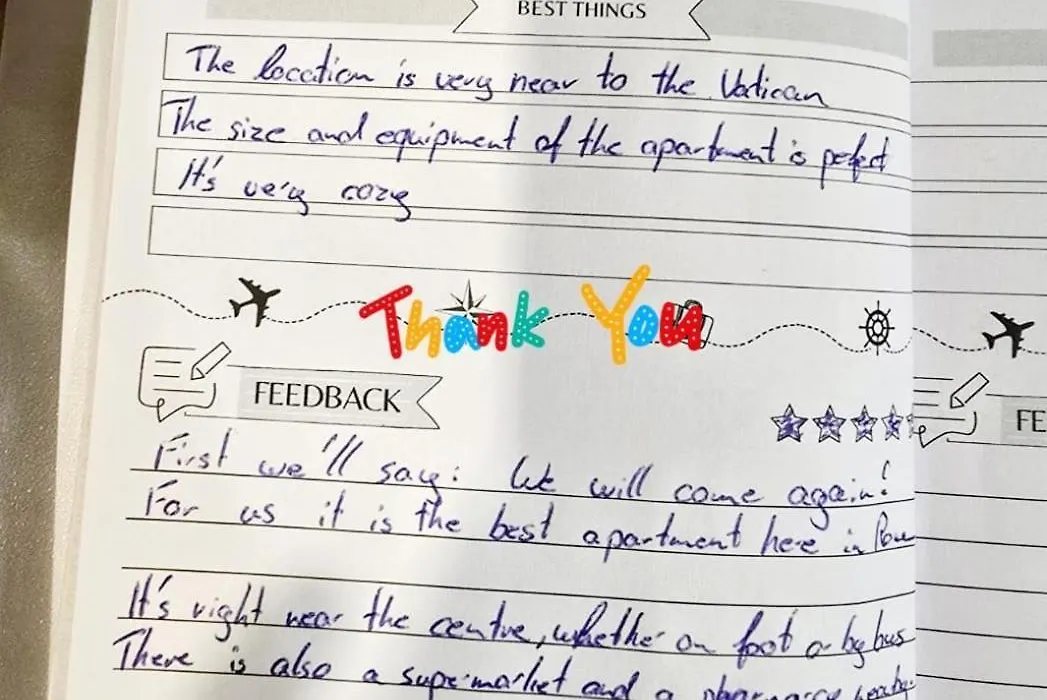 BEST THINGS
The location is very near to the Vatican
The size and equipment of the apartment is pefect
It's very cozy
Thank You
FEEDBACK
FE
First we'll say: We will come again!
For us it is the best apartment here in Rome
It's right near the centre, whether on foot or by bus
There is also a supermarket and a pharmacy nearby.